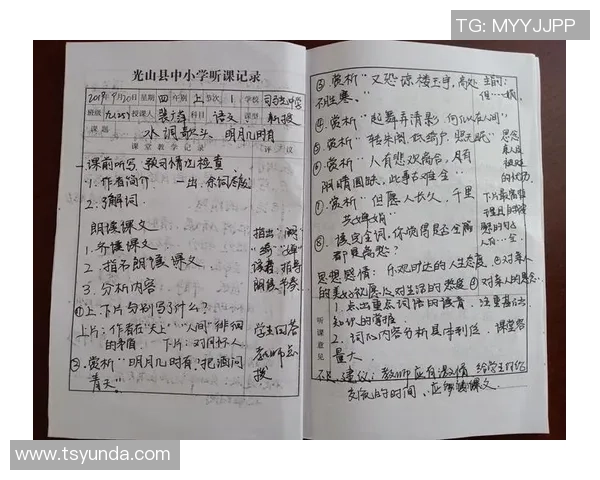 TG: MYYJJPP
光山县中小学听课记录
2019年9月20日 星期 四 年 期 上 节次 1 学校 司马光中学
班级 九(25) 授课人 裴 科目 语文 课型 新授
课题 水调歌头 明月几时有
课堂教学记录 评议
一课前听写、预习情况检查
1. 作者简介
2. 了解词
朗读课文
1. 齐读课文 指出
2. 指名朗读课文 读音、指导
3. 分析内容 朗读节奏
①上、下片分别写了什么? 学生回答
上片:作者在“天上”“人间”徘徊 教师点
的矛盾. 下片: 对月怀人 拨
②. 赏析“明月几时有,把酒问
青天”
③. 赏析“又恐琼楼玉宇,高处
不胜寒。”
④. 赏析“起舞弄清影,何似在人间”
⑤. 赏析“转朱阁,低绮户,照无眠” 思念
⑥ 赏析“人有悲欢离合,月有 亲人
阴晴圆缺,此事古难全”
⑦. 赏析“但愿人长久,千里
共婵娟” 下片最富哲
⑧. 读完全词,你觉得是否全篇
都是离愁? 人有…全
思想感情: 乐观旷达的人生态度 ②对亲人
的美好祝愿 及对生活的热爱 ④对亲人的思念.
听课意见
1. 点出重点词语的读音 注重基础
知识的掌握
2. 词的内容分析具体到位. 课堂容
量大.
建议: 教师应有激情 给学生
交流的时间、应
www.tsyunda.com